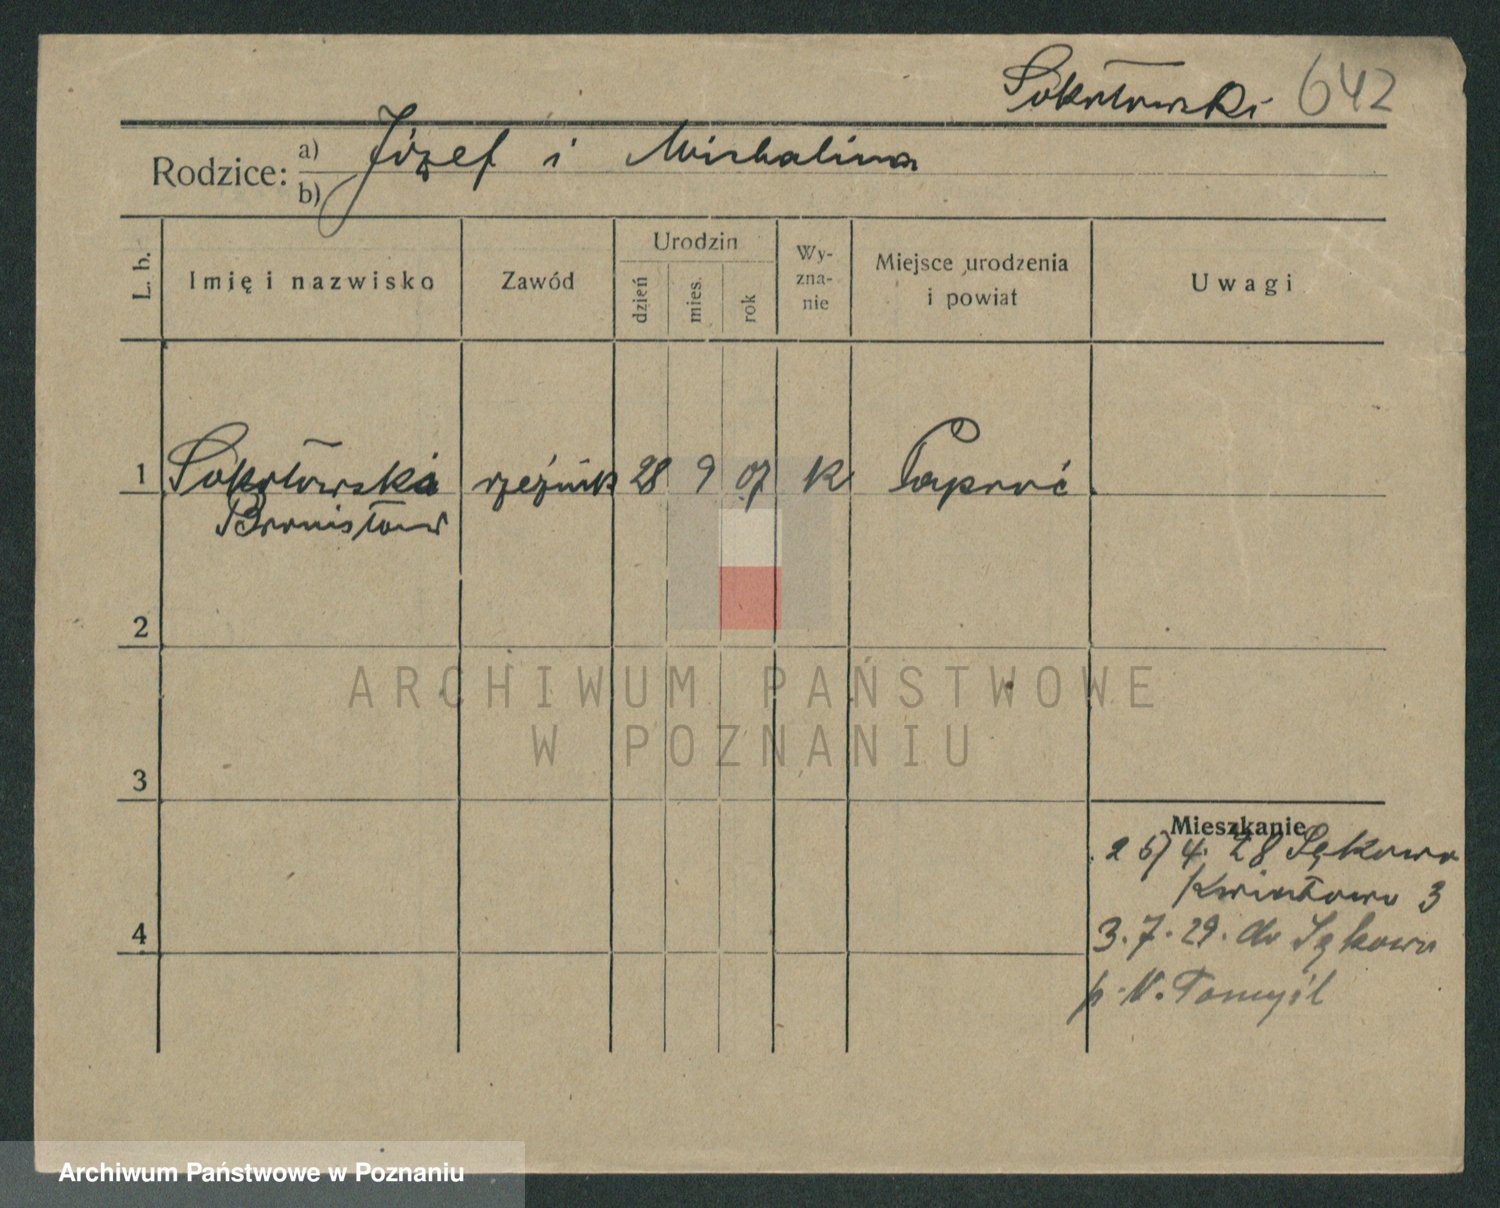 Sokołowski 642
Rodzice: a) Józef i Michalina
b)
L. b. Imię i nazwisko Zawód Urodzin dzień mies. rok Wy-zna-nie Miejsce urodzenia i powiat Uwagi
1 Sokołowski rzeźnik 28 9 07 K Paproć
Bronisław
2
ARCHIWUM PAŃSTWOWE
W POZNANIU
3
Mieszkanie
4. 28 Sękowo
Kwiatowa 3
4
3.7.29. do Sękowo
p. N. Tomyśl
Archiwum Państwowe w Poznaniu